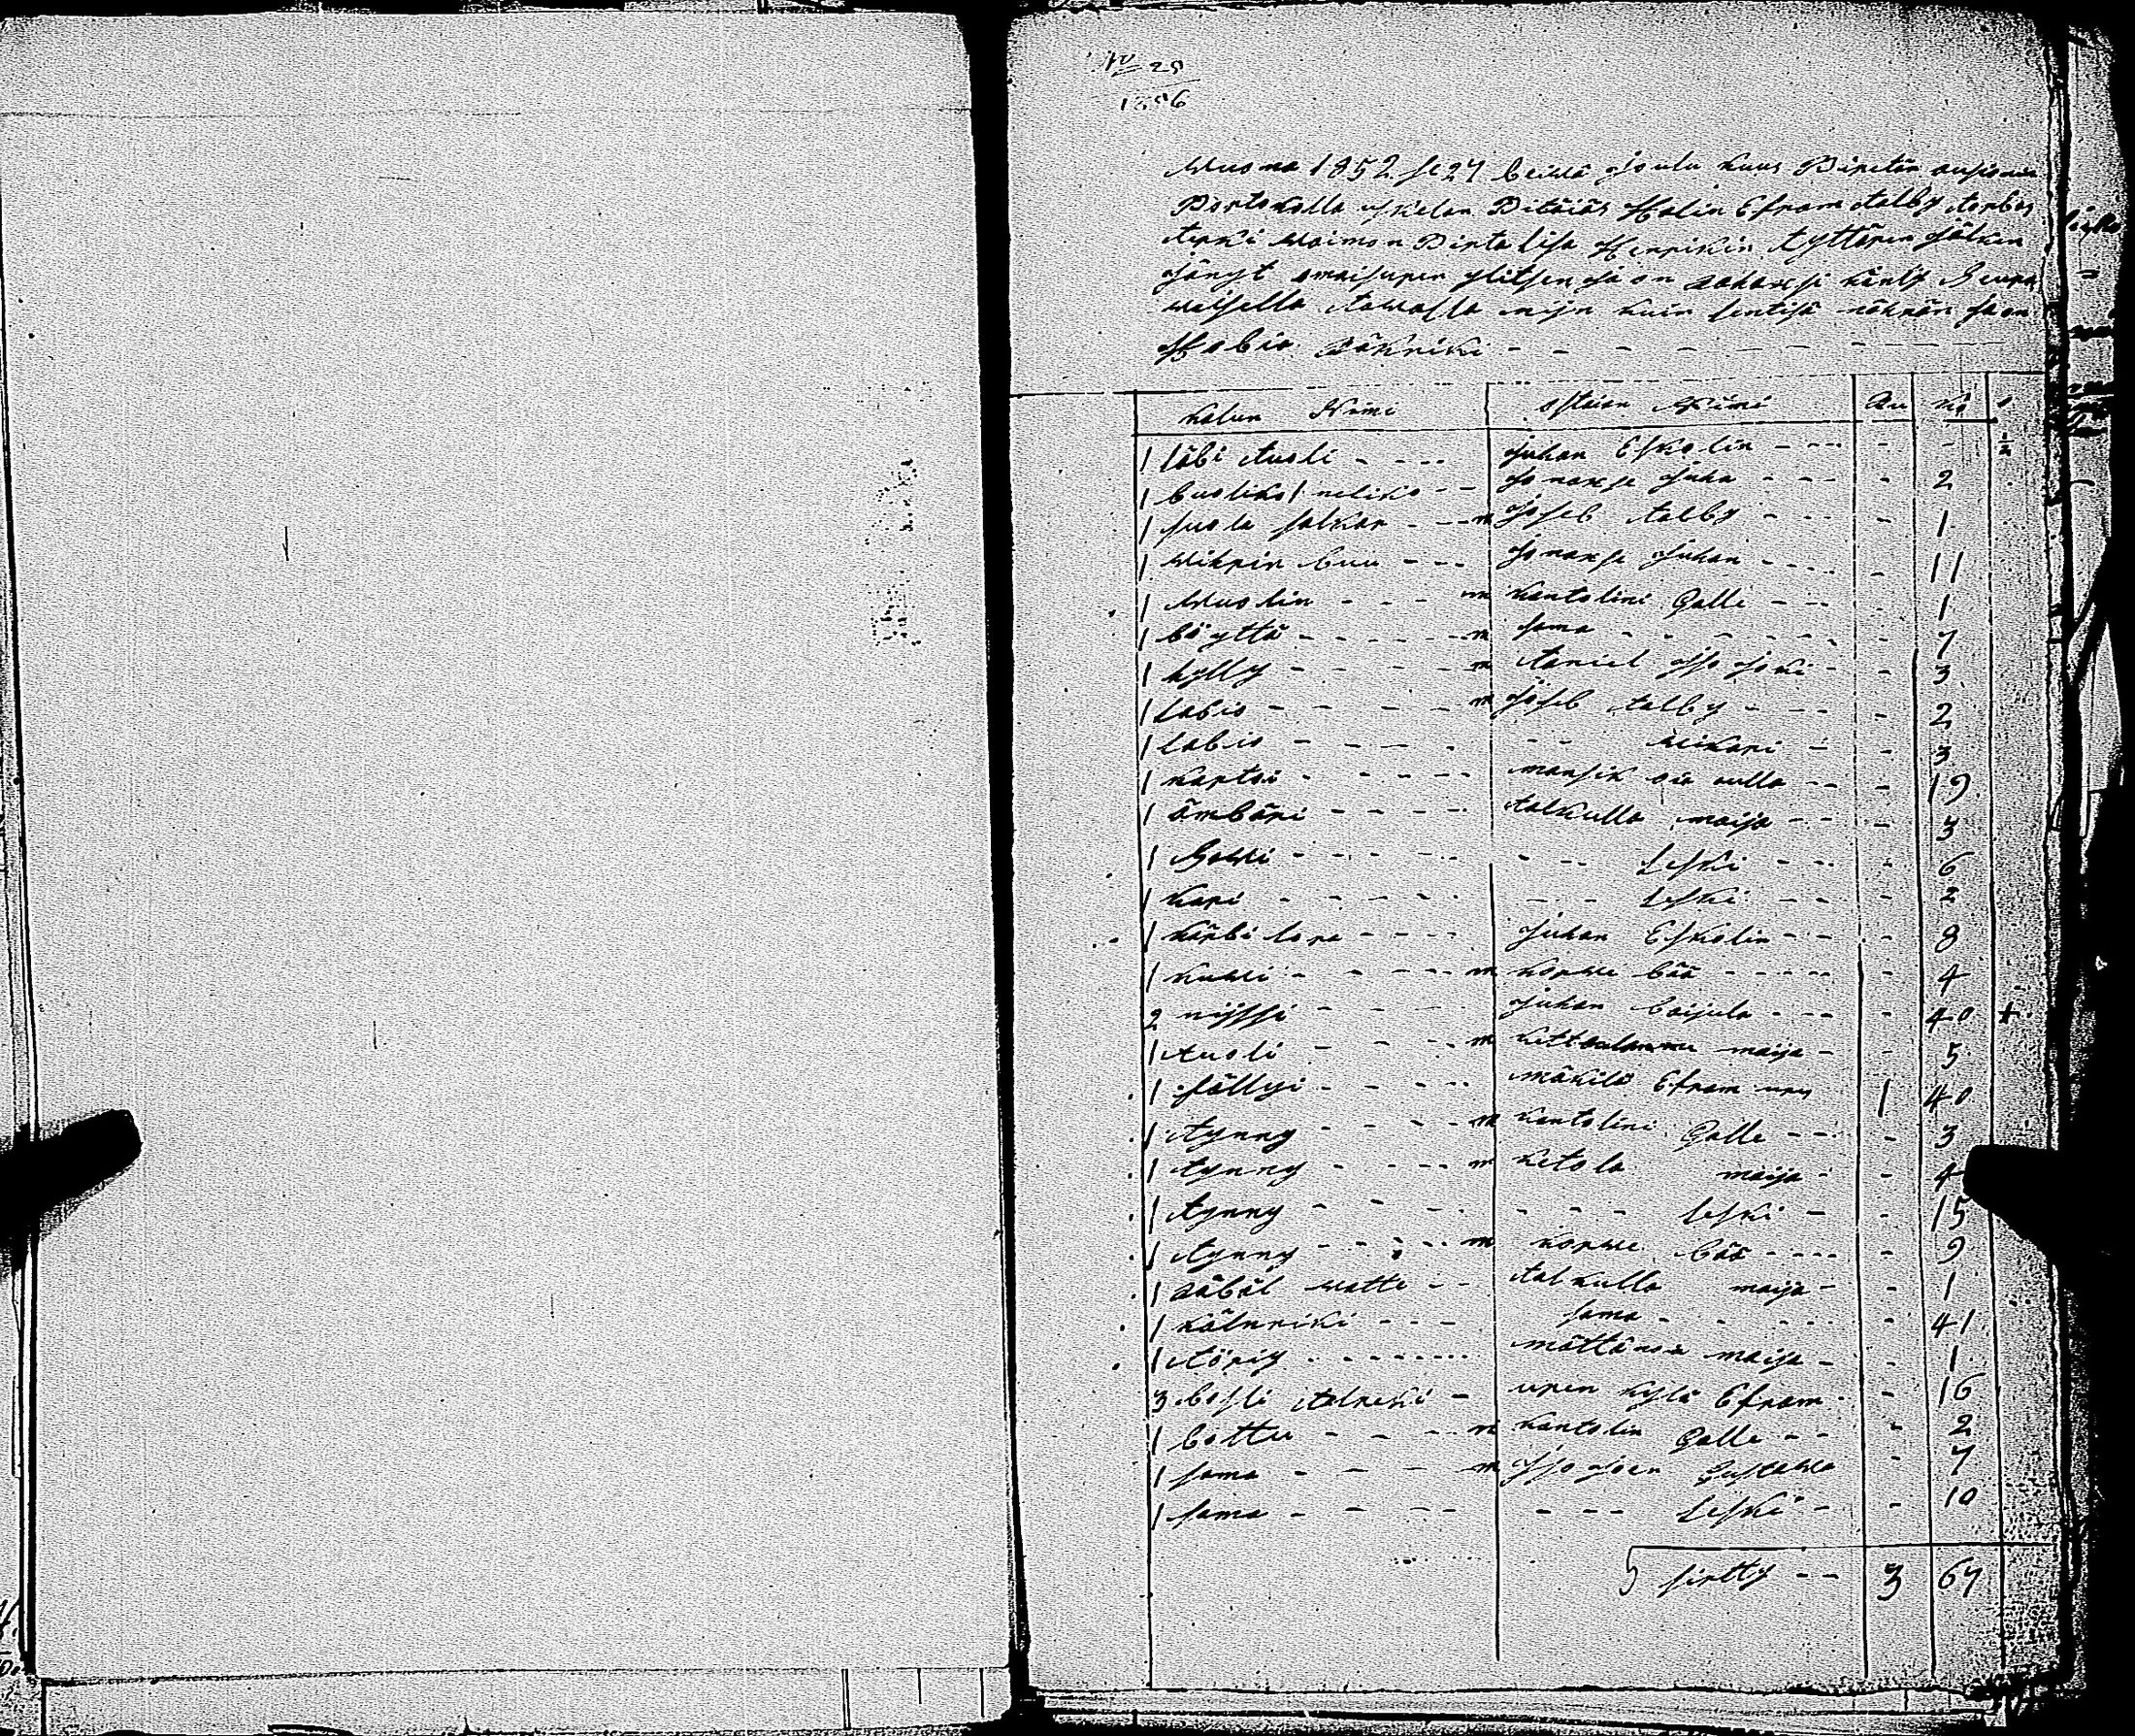 No 29
1896
Wuona 1852 se 27 beiwä Joulu kuus Piretän ausioni
Portokolla Iskelon Pitäiäs Halin Efram talby torbar
terki Waimon Pirta lisa Henrikin tyttären Jälken
Jänyt omaisuren ylitsen Ja on rahaxsi känty Seura
waisella tawalla nijn kuin sentisä nähnän Ja on
Habia Päkriki - - - - - - -
kalun Nimi ostaian Nimi Ru ko
1 läbi tuoli - - - Juhan Eskolin - - - - - ½
1 buoliko / neliko - - Jonaxse Juha - - - - 2
1 suola salkar - - - m Joseb talby - - - - 1
1 Wikrin buu - - - Jonaxse Juhan - - - - 11
1 Wuolin - - - m kantolini Galle - - - 1
1 böyttä - - - - - m sama - - - - - - 7
1 hylly - - - - m taniel Iso Joki - - 3
1 Labio - - - - m Joseb talby - - - - 2
1 Labio - - - - - - Weikari - - 3
1 kartoi - - - - - mansik oia ulla - - - 19
1 ämbäri - - - - talkulla maija - - - 3
1 Sawi - - - - - - - - Leski - - - 6
1 kari - - - - - - - - Leski - - - 2
1 kärbi lora - - - - Juhan Eskolin - - - 8
1 kuwi - - - - - m korwe bää - - - - - 4
2 nijssi - - - - Juhan boijula - - - - 40
1 tuoli - - - - m maija - - 5
1 sällyi - - - - - mäkilä Efram 1 40
1 tynny - - - - m kantolini Galle - - - 3
1 tynny - - - - m ketola maija - - 4
1 tynny - - - - - - - Leski - - 15
1 tynny - - - - - m korwe bää - - - - 9
1 räbäl watte - - talkulla maija - - 1
1 kälnriki - - - sama - - - - - 41
1 töriy - - - - - - mättänsä maija - - 1
3 bosli talreki - uren kylä Efram - - 16
1 bottu - - - - m kantolin Galle - - - 2
1 sama - - - - m Iso Joen Gustawa - 7
1 sama - - - - - - - Leski - - 10
sirtty - - 3 67